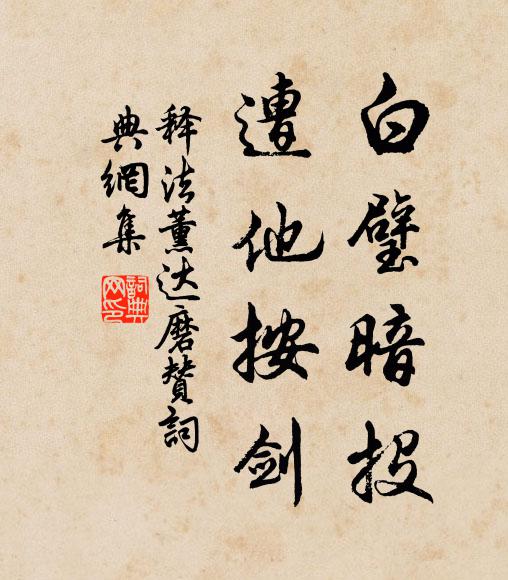 白璧暗投
遭他按剑
释法薰达磨赞词
典網集
詞典
网印